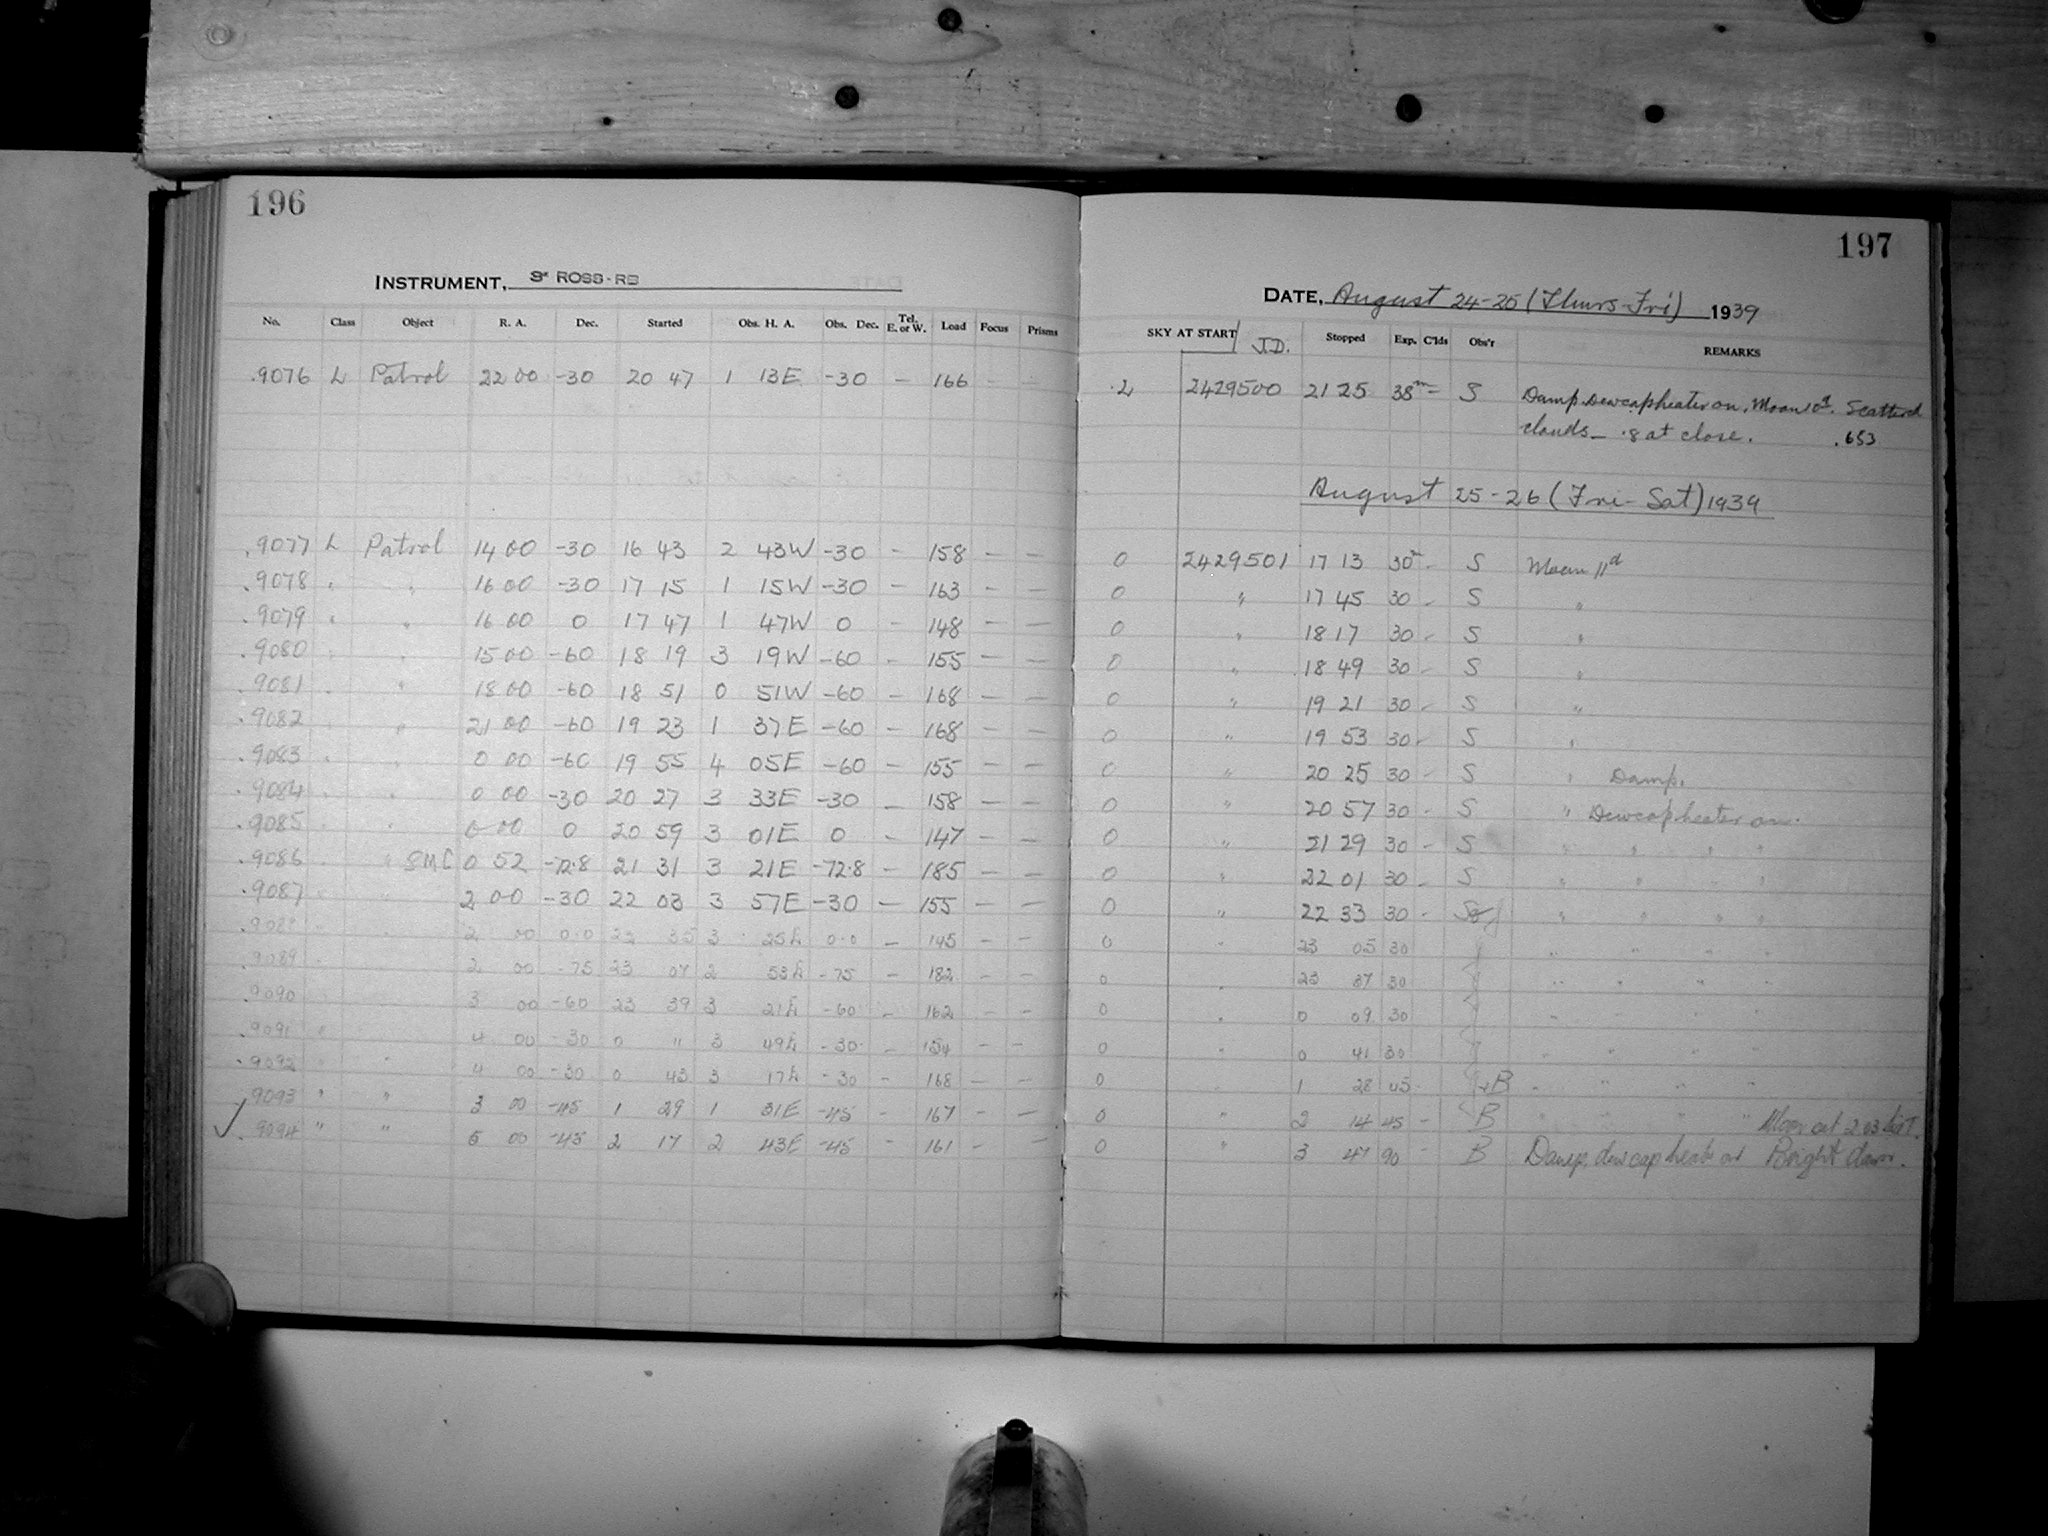 196
INSTRUMENT, 3" ROSS-RB
No. Class Object R. A. Dec. Started Obs. H. A. Obs. Dec. Tel. E. or W. Load Focus Prisms
.9076 L Patrol 22 00 -30 20 47 1 13E -30 - 166 -
.9077 L Patrol 14 00 -30 16 43 2 43W -30 - 158 - -
.9078 " " 16 00 -30 17 15 1 15W -30 - 163 - -
.9079 " " 16 00 0 17 47 1 47W 0 - 148 - -
.9080 " " 15 00 -60 18 19 3 19W -60 - 155 - -
.9081 " " 18 00 -60 18 51 0 51W -60 - 168 - -
.9082 " " 21 00 -60 19 23 1 37E -60 - 168 - -
.9083 " " 0 00 -60 19 55 4 05E -60 - 155 - -
.9084 " " 0 00 -30 20 27 3 33E -30 - 158 - -
.9085 " " 0 00 0 20 59 3 01E 0 - 147 - -
.9086 " " SMC 0 52 -72.8 21 31 3 21E -72.8 - 185 - -
.9087 " " 2 00 -30 22 03 3 57E -30 - 155 - -
.9088 " 2 00 0.0 22 35 3 25E 0.0 - 145 - -
.9089 " 2 00 -75 23 07 2 53E -75 - 182 - -
.9090 " 3 00 -60 23 39 3 21E -60 - 162 - -
.9091 " " 4 00 -30 0 11 3 49E -30 - 154 - -
.9092 " " 4 00 -30 0 43 3 17E -30 - 168 - -
.9093 " " 3 00 -45 1 29 1 31E -45 - 167 - -
.9094 " " 5 00 -45 2 17 2 43E -45 - 161 - -
197
DATE, August 24-25 (Thurs-Fri) 1939
SKY AT START J.D. Stopped Exp. C'lds Obs'r REMARKS
.2 2429500 21 25 38m - S Damp. Dewcap heater on. Moon 10d. Scattered
clouds - .8 at close. .653
August 25-26 (Fri-Sat) 1939
0 2429501 17 13 30m - S Moon 11d
0 " 17 45 30 - S "
0 " 18 17 30 - S "
0 " 18 49 30 - S "
0 " 19 21 30 - S "
0 " 19 53 30 - S "
0 " 20 25 30 - S " Damp.
0 " 20 57 30 - S " Dewcap heater on.
0 " 21 29 30 - S " " " "
0 " 22 01 30 - S " " " "
0 " 22 33 30 - " " " "
0 " 23 05 30 " " " "
0 " 23 37 30 " " " "
0 " 0 09 30 " " " "
0 " 0 41 30 " " " "
0 " 1 28 45 +B " " " "
0 " 2 14 45 - B " " " " Moon set 2.03
0 " 3 47 90 - B Damp, dewcap heater on Bright dawn.